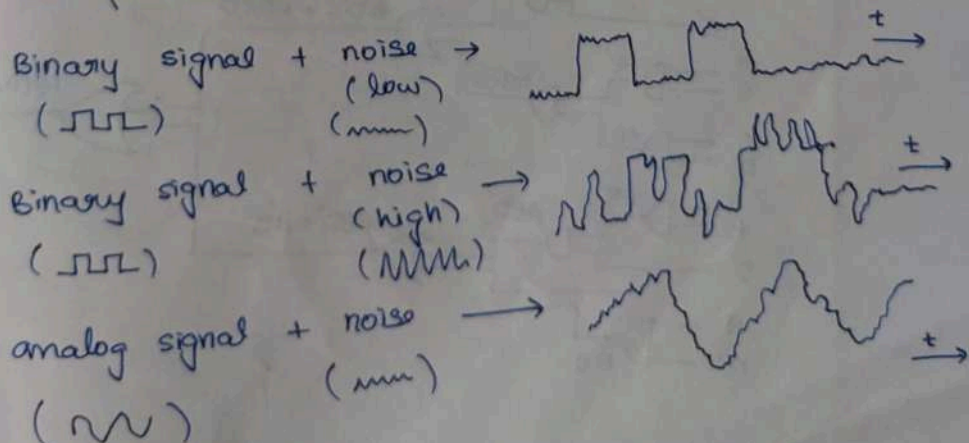 Binary signal + noise → t
(low)
( )
( )
Binary signal + noise → t
(high)
( )
( )
analog signal + noise → t
( )
( )